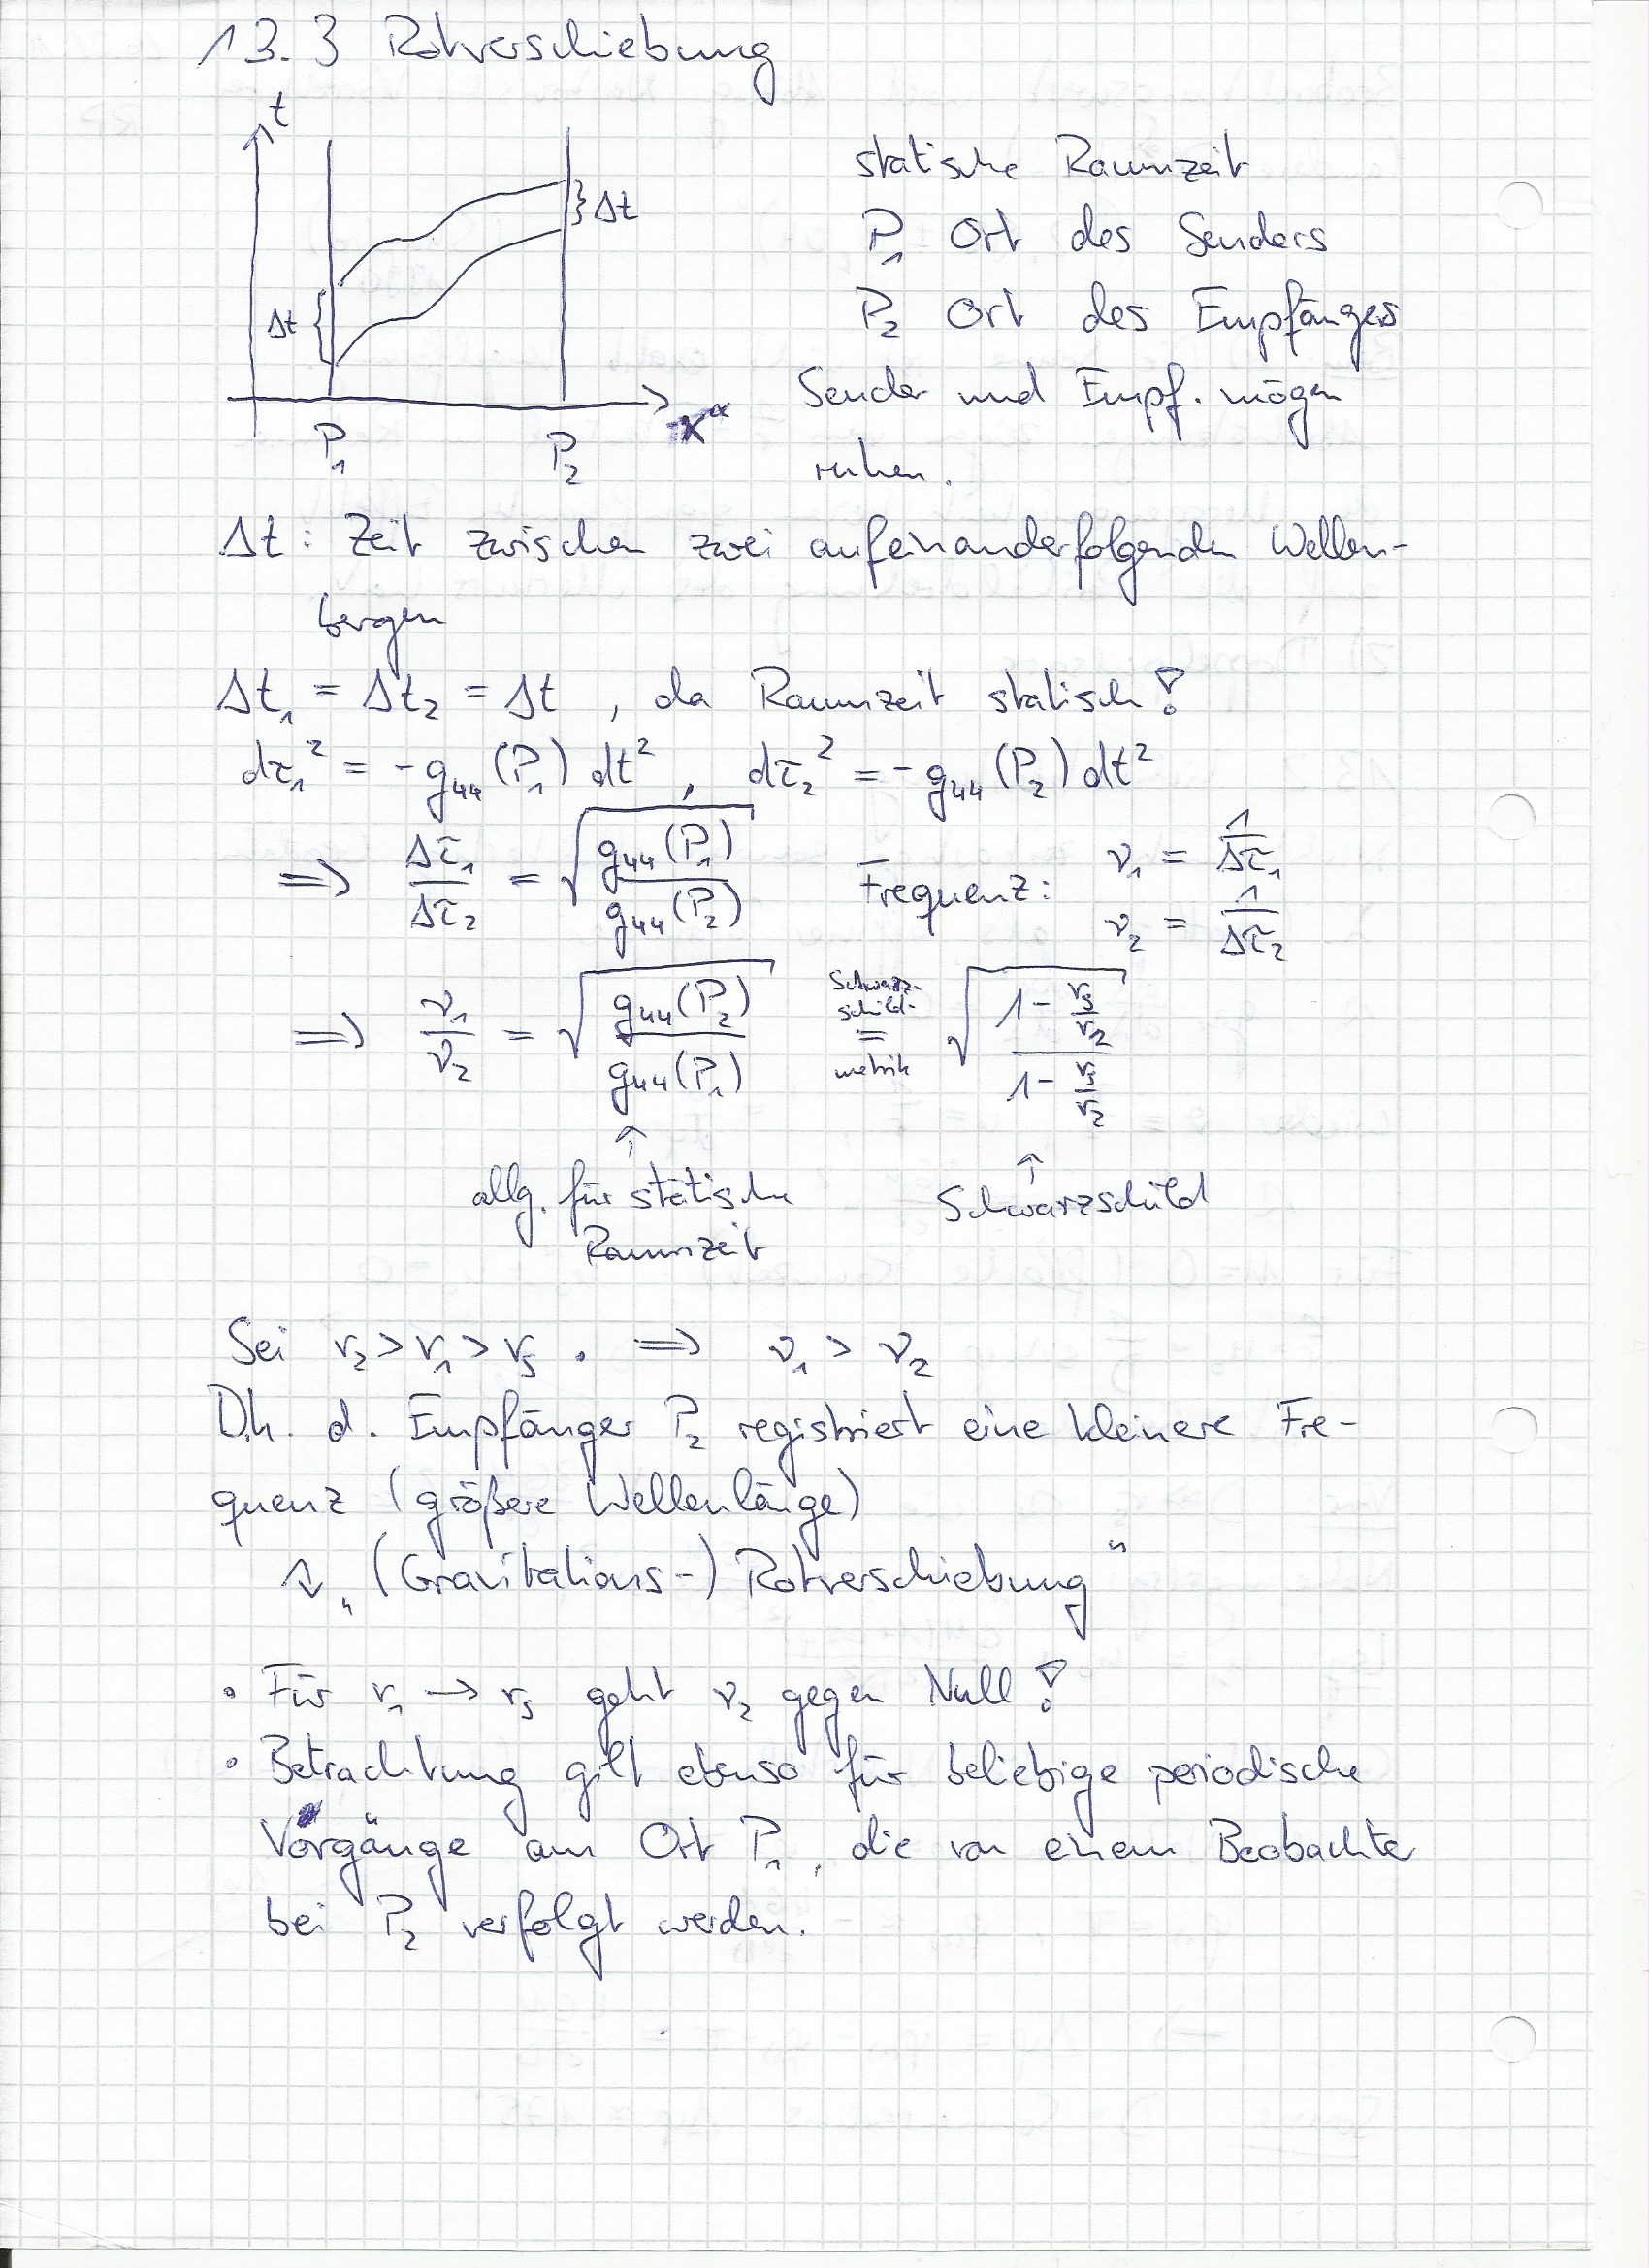 13.3 Rotverschiebung
t
Δt
Δt
x^α
P₁
P₂
statische Raumzeit
P₁ Ort des Senders
P₂ Ort des Empfängers
Sender und Empf. mögen
ruhen.
Δt: Zeit zwischen zwei aufeinanderfolgenden Wellen-
bergen
Δt₁ = Δt₂ = Δt , da Raumzeit statisch!
dτ₁² = -g₄₄(P₁) dt² , dτ₂² = -g₄₄(P₂) dt²
⟹ Δτ₁/Δτ₂ = √(g₄₄(P₁)/g₄₄(P₂)) Frequenz: ν₁ = 1/Δτ₁
ν₂ = 1/Δτ₂
⟹ ν₁/ν₂ = √(g₄₄(P₂)/g₄₄(P₁)) Schwarz-schild-metrik = √((1 - r_s/r₂)/(1 - r_s/r₂))
↑ ↑
allg. für statische Schwarzschild
Raumzeit
Sei r₂ > r₁ > r_s . ⟹ ν₁ > ν₂
D.h. d. Empfänger P₂ registriert eine kleinere Fre-
quenz (größere Wellenlänge)
„(Gravitations-) Rotverschiebung“
• Für r₁ → r_s geht ν₂ gegen Null!
• Betrachtung gilt ebenso für beliebige periodische
Vorgänge am Ort P₁, die von einem Beobachter
bei P₂ verfolgt werden.